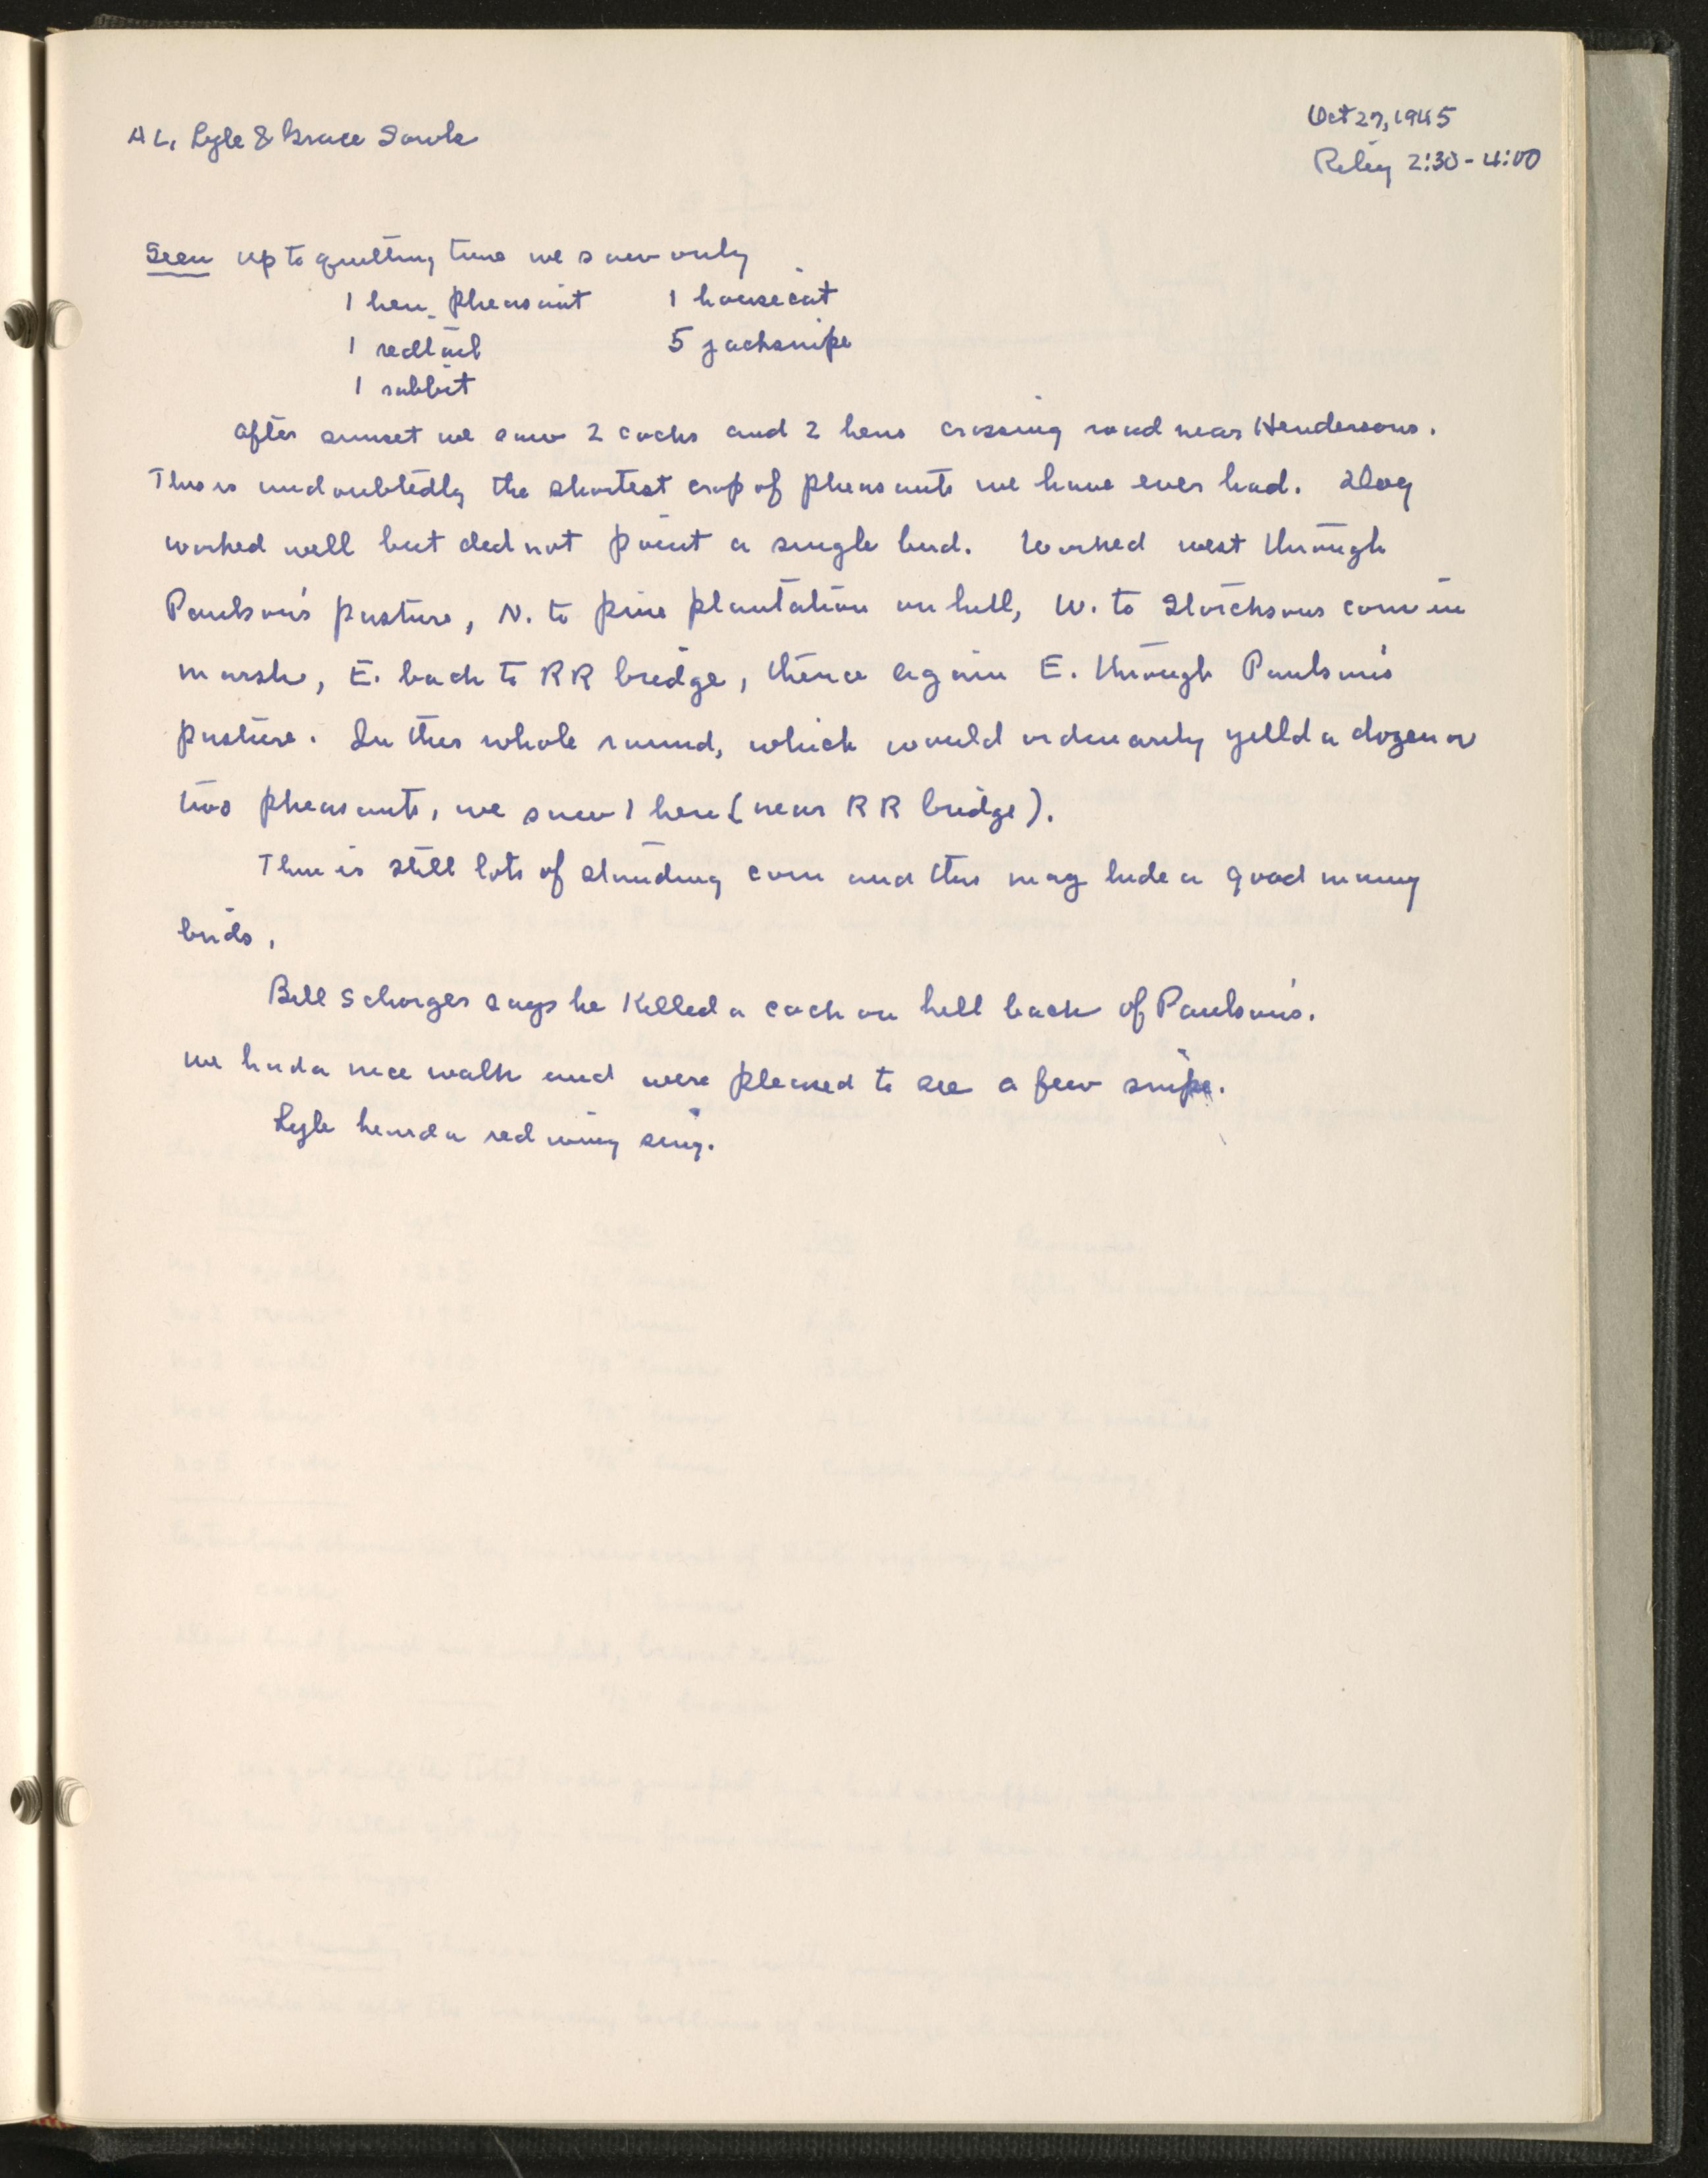 AL, Lyle & Grace Sowls
Oct 27, 1945
Riley 2:30 - 4:00
Seen up to quitting time we saw only
1 hen pheasant 1 housecat
1 redtail 5 jacksnipe
1 rabbit
After sunset we saw 2 cocks and 2 hens crossing road near Hendersons.
This is undoubtedly the shortest crop of pheasants we have ever had. Dog
worked well but did not point a single bird. Worked west through
Paulson's pasture, N. to pine plantation on hill, W. to corn in
marsh, E. back to RR bridge, thence again E. through Paulson's
pasture. In this whole round, which would ordinarily yeild a dozen or
two pheasants, we saw 1 hen (near RR bridge).
There is still lots of standing corn and this may hide a good many
birds.
Bill Schorger says he killed a cock on hill back of Paulson's.
We had a nice walk and were pleased to see a few snipe.
Lyle heard a redwing sing.